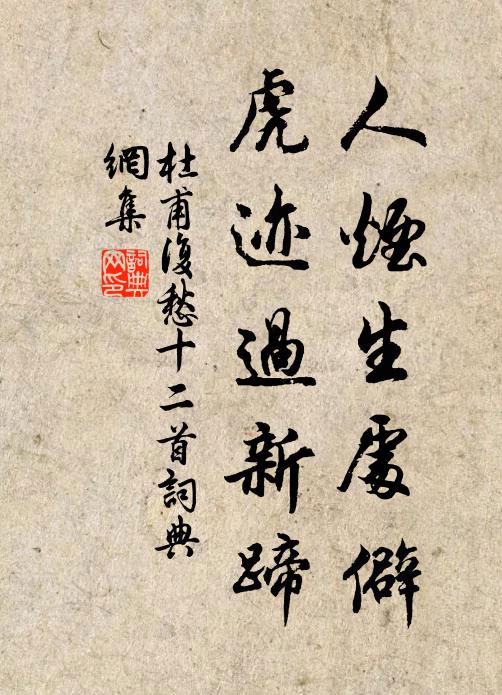 人煙生處僻
虎迹過新蹄
杜甫復愁十二首詞典
網集
詞典網印